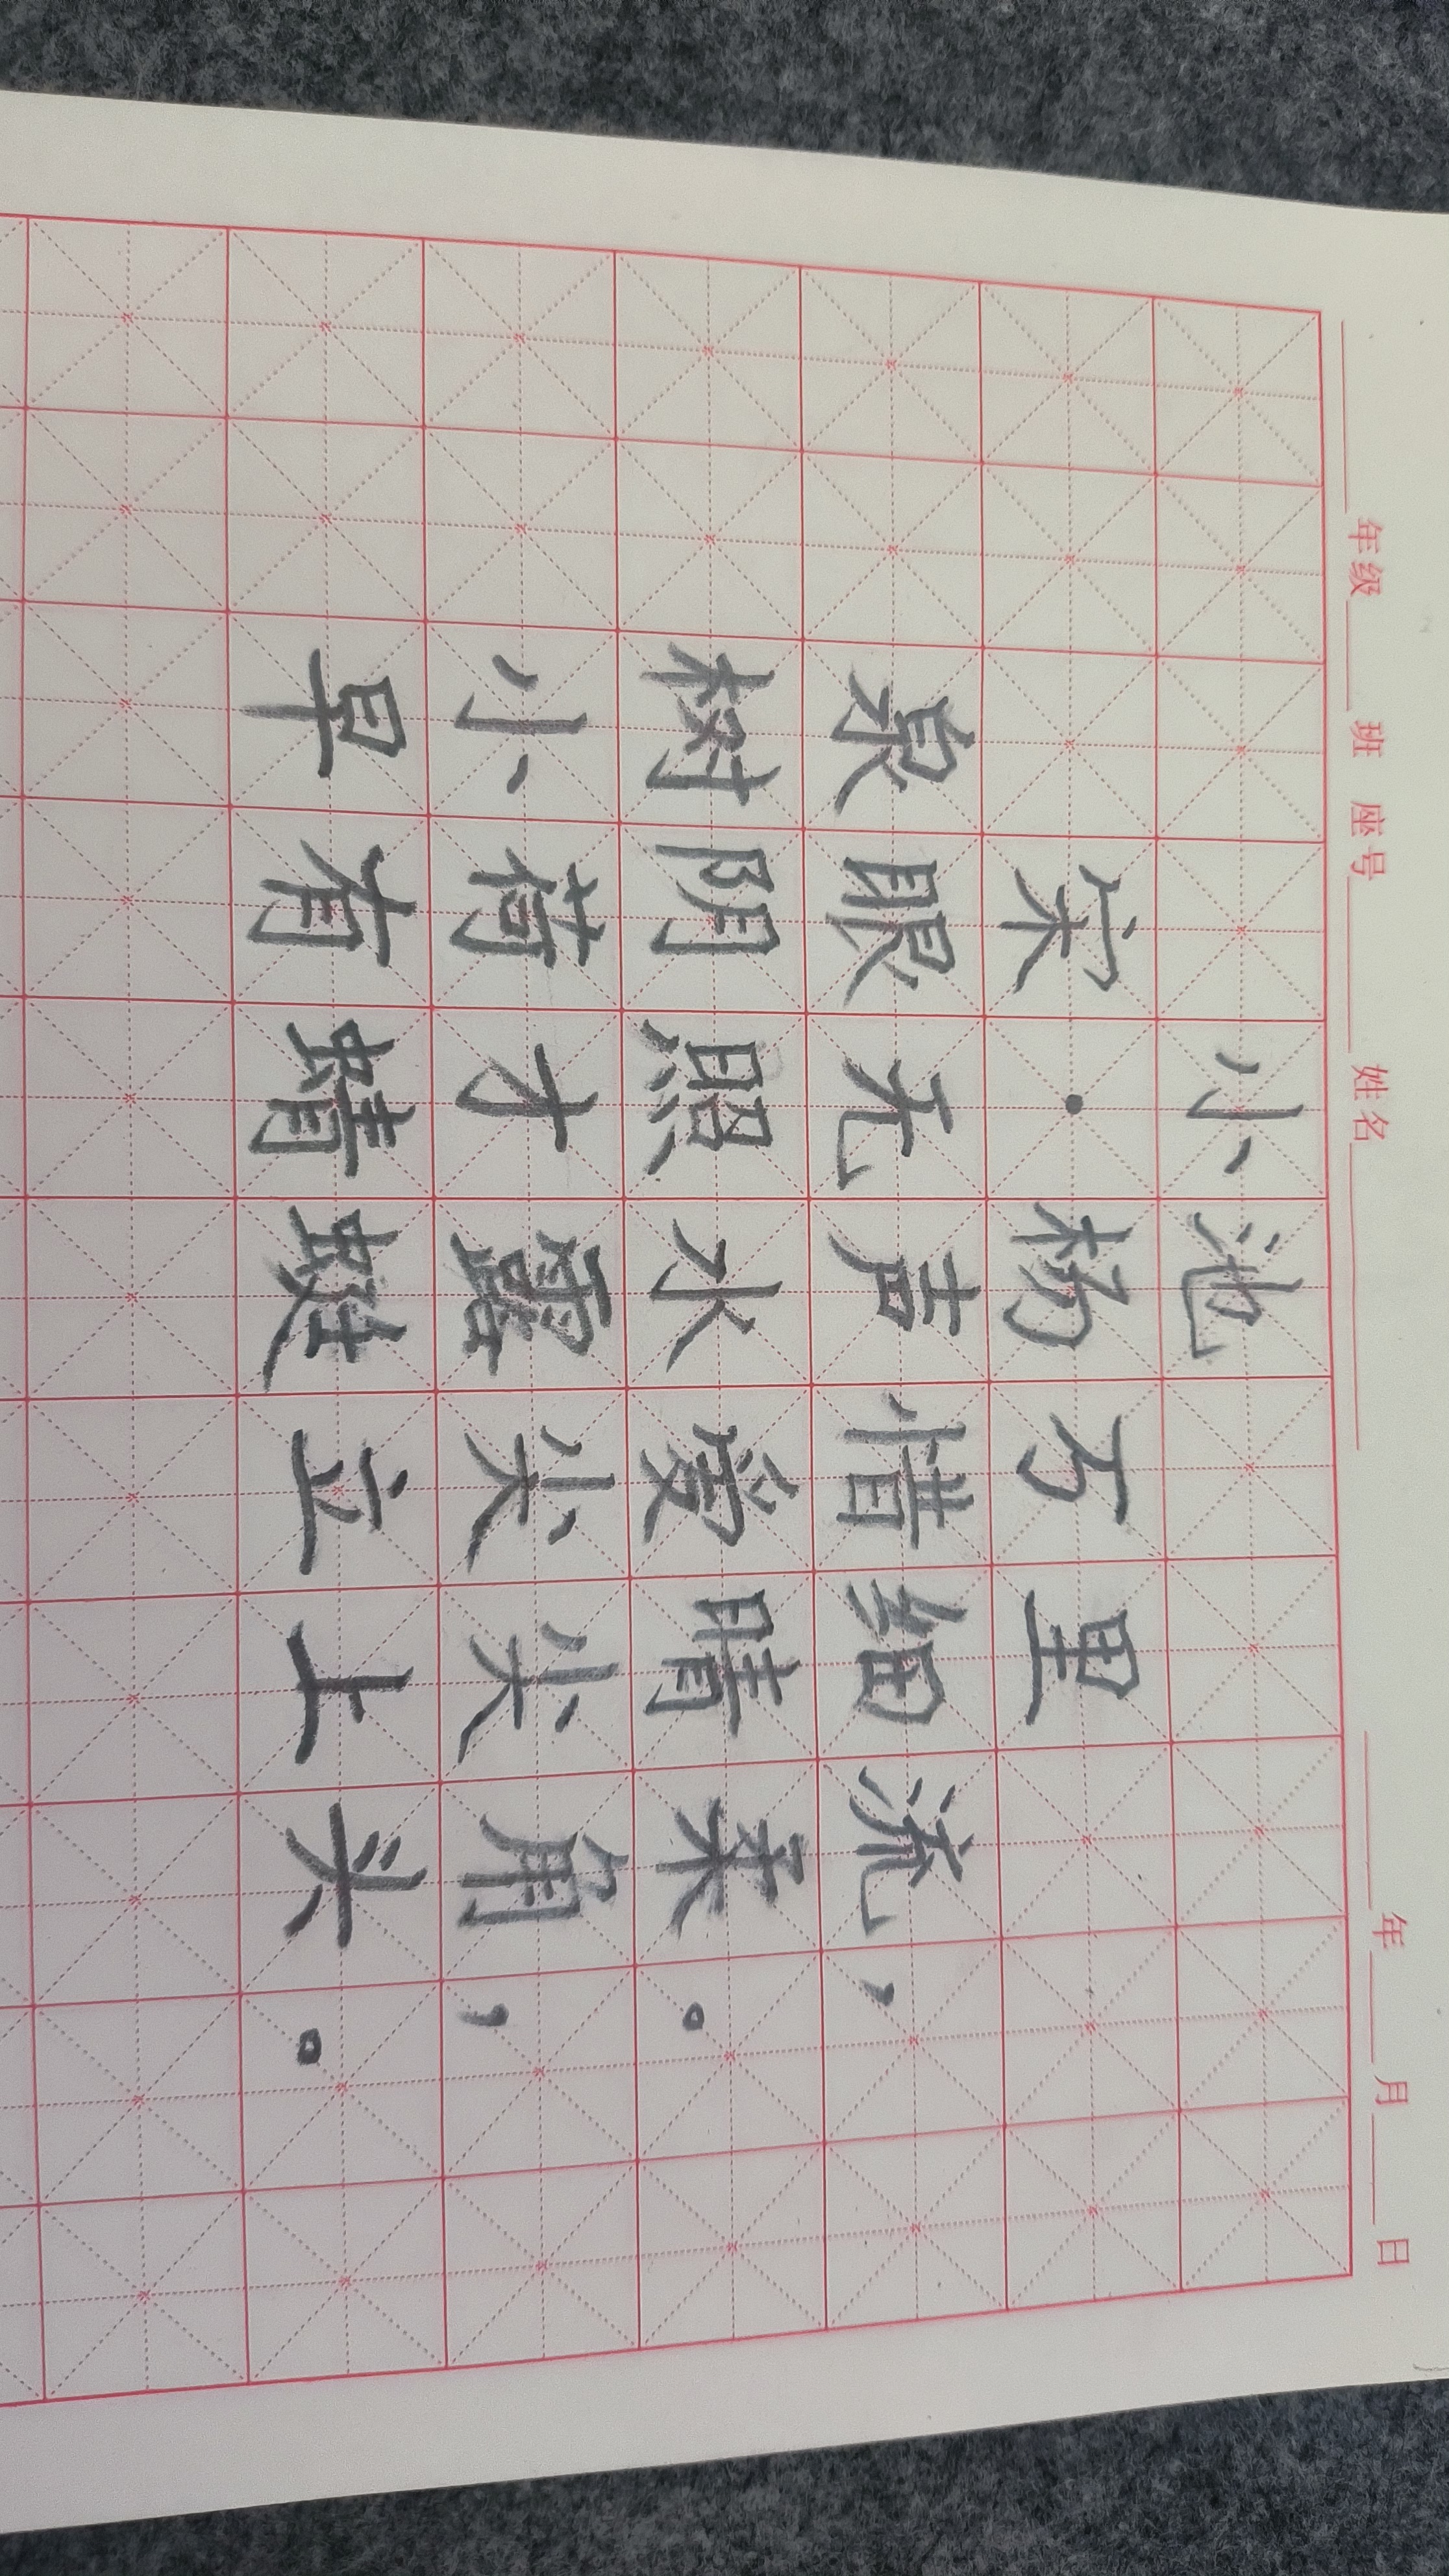 年级 班 座号 姓名 年 月 日
小池
宋·杨万里
泉眼无声惜细流，
树阴照水爱晴柔。
小荷才露尖尖角，
早有蜻蜓立上头。